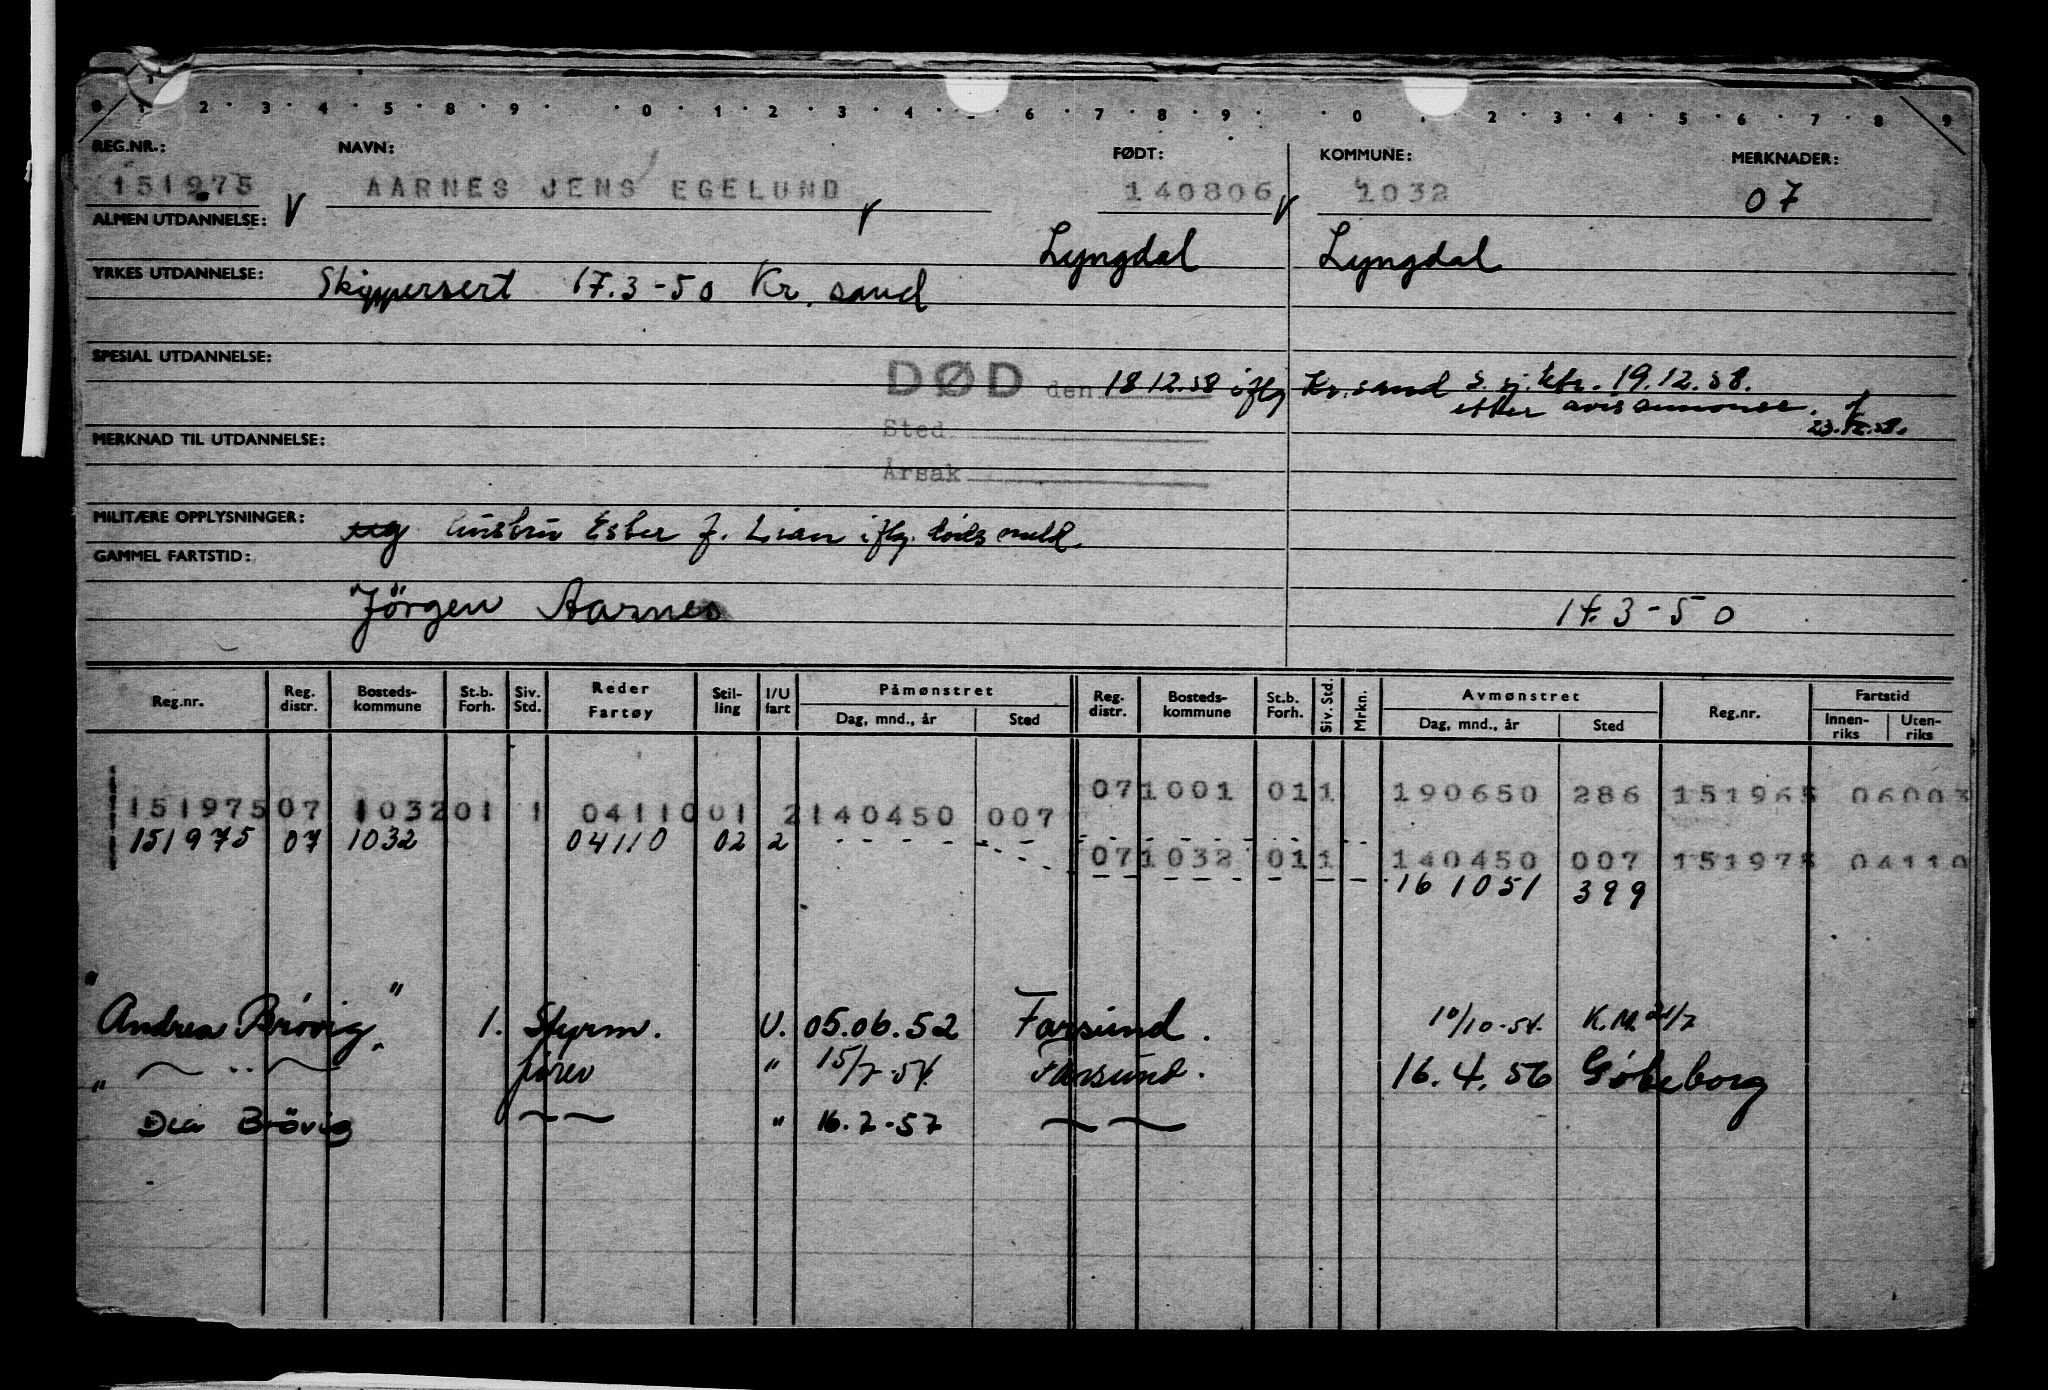 0 1 2 3 4 5 8 9 0 1 2 3 4 6 7 8 9 0 2 3 4 5 6 7 8 9
REG.NR.: NAVN: FØDT: KOMMUNE: MERKNADER:
151975 AARNES JENS EGELUND 140806 1032 07
ALMEN UTDANNELSE: Lyngdal Lyngdal
YRKES UTDANNELSE: Skippersert 17.3-50 Kr. sand
SPESIAL UTDANNELSE:
DØD den 18 12.58 iflg Kr. sand s. sj. ktr. 19.12.58.
etter avisannonse.
Sted 23.12.58.
MERKNAD TIL UTDANNELSE:
Årsak
MILITÆRE OPPLYSNINGER: Esber J. Lian iflg. døds meld.
GAMMEL FARTSTID:
"Jörgen Aarnes 17.3-50
Reg.nr. Reg. distr. Bosteds-kommune St.b. Forh. Siv. Std. Reder Fartøy Stil-ling I/U fart Påmønstret Dag, mnd., år Sted Reg. distr. Bosteds-kommune St.b. Forh. Siv. Std. Mrkn. Avmønstret Dag, mnd., år Sted Reg.nr. Fartstid Innen-riks Uten-riks
07 1001 01 1 190650 286 151965 06003
151975 07 1032 01 1 04110 01 2 140450 007
151975 07 1032 04110 02 2
07 1032 01 1 140450 007 151975 04110
16 10 51 399
"Andrea Brövig" 1. Styrm. U. 05.06.52 Farsund. 10/10-54. K.M. 21/7
〜 " 〜 fører " 15/7-54. Farsund. 16.4.56 Göteborg
" Dea Brövig 〜〜 " 16.2-57 〜〜